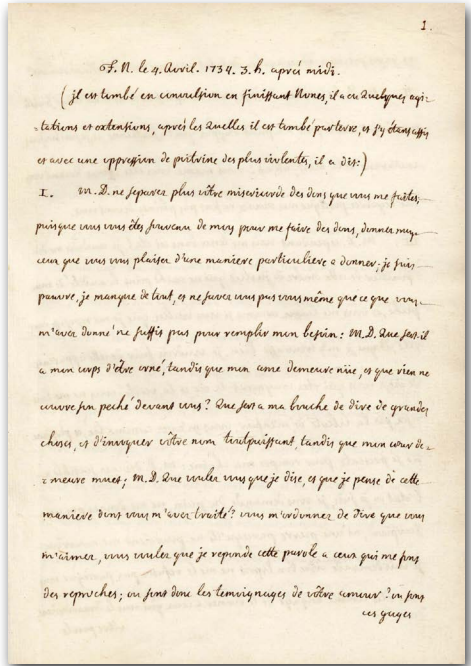 1.
F. N. le 4. Avril. 1734. 3. h. aprés midi.
(jl est tombé en convulsion en finissant Nones, il a eu quelques agi-
-tations et extensions, aprés lesquelles il est tombé par terre, et s'y étant assis
et avec une oppression de poitrine des plus violentes, il a dit:)
I. M. D. ne separez plus vôtre misericorde des dons que vous me faites;
puisque vous vous étes souvenu de moy pour me faire des dons, donnez moy
ceux que vous vous plaisez d'une maniere particuliere a donner; je suis
pauvre, je manque de tout, et ne savez vous pas vous même que ce que vous
m'avez donné ne suffit pas pour remplir mon besoin: M. D. Que sert-il
a mon corps d'être orné, tandis que mon ame demeure nüe, et que rien ne
couvre son peché devant vous? Que sert a ma bouche de dire de grandes
choses, et d'invoquer vôtre nom toutpuissant, tandis que mon cœur de-
-meure muet; M. D. Que voulez vous que je dise, et que je pense de cette
maniere dont vous m'avez traité? vous m'ordonnez de dire que vous
m'aimez, vous voulez que je reponde cette parole a ceux qui me font
des reproches; ou sont donc les temoignages de vôtre amour? ou sont
ces gages